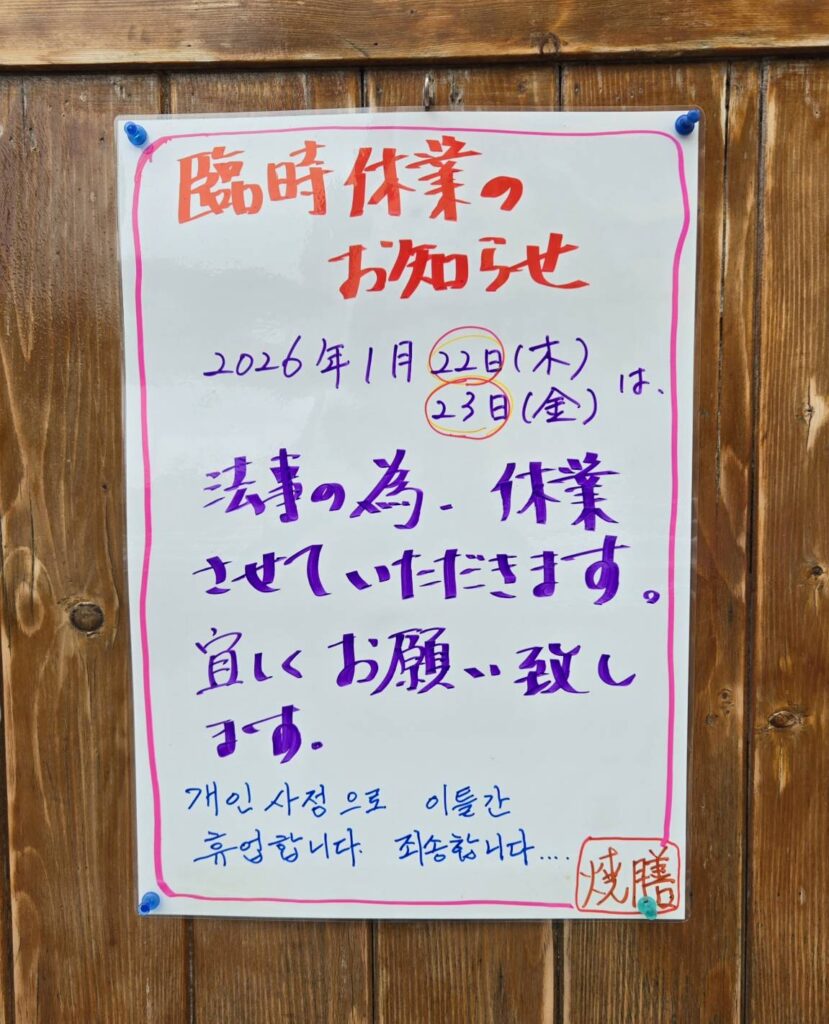 臨時休業の
お知らせ
2026年1月22日(木)
23日(金)は、
法事の為、休業
させていただきます。
宜しくお願い致し
ます。
개인 사정으로 이틀간
휴업합니다. 죄송합니다....
焼膳